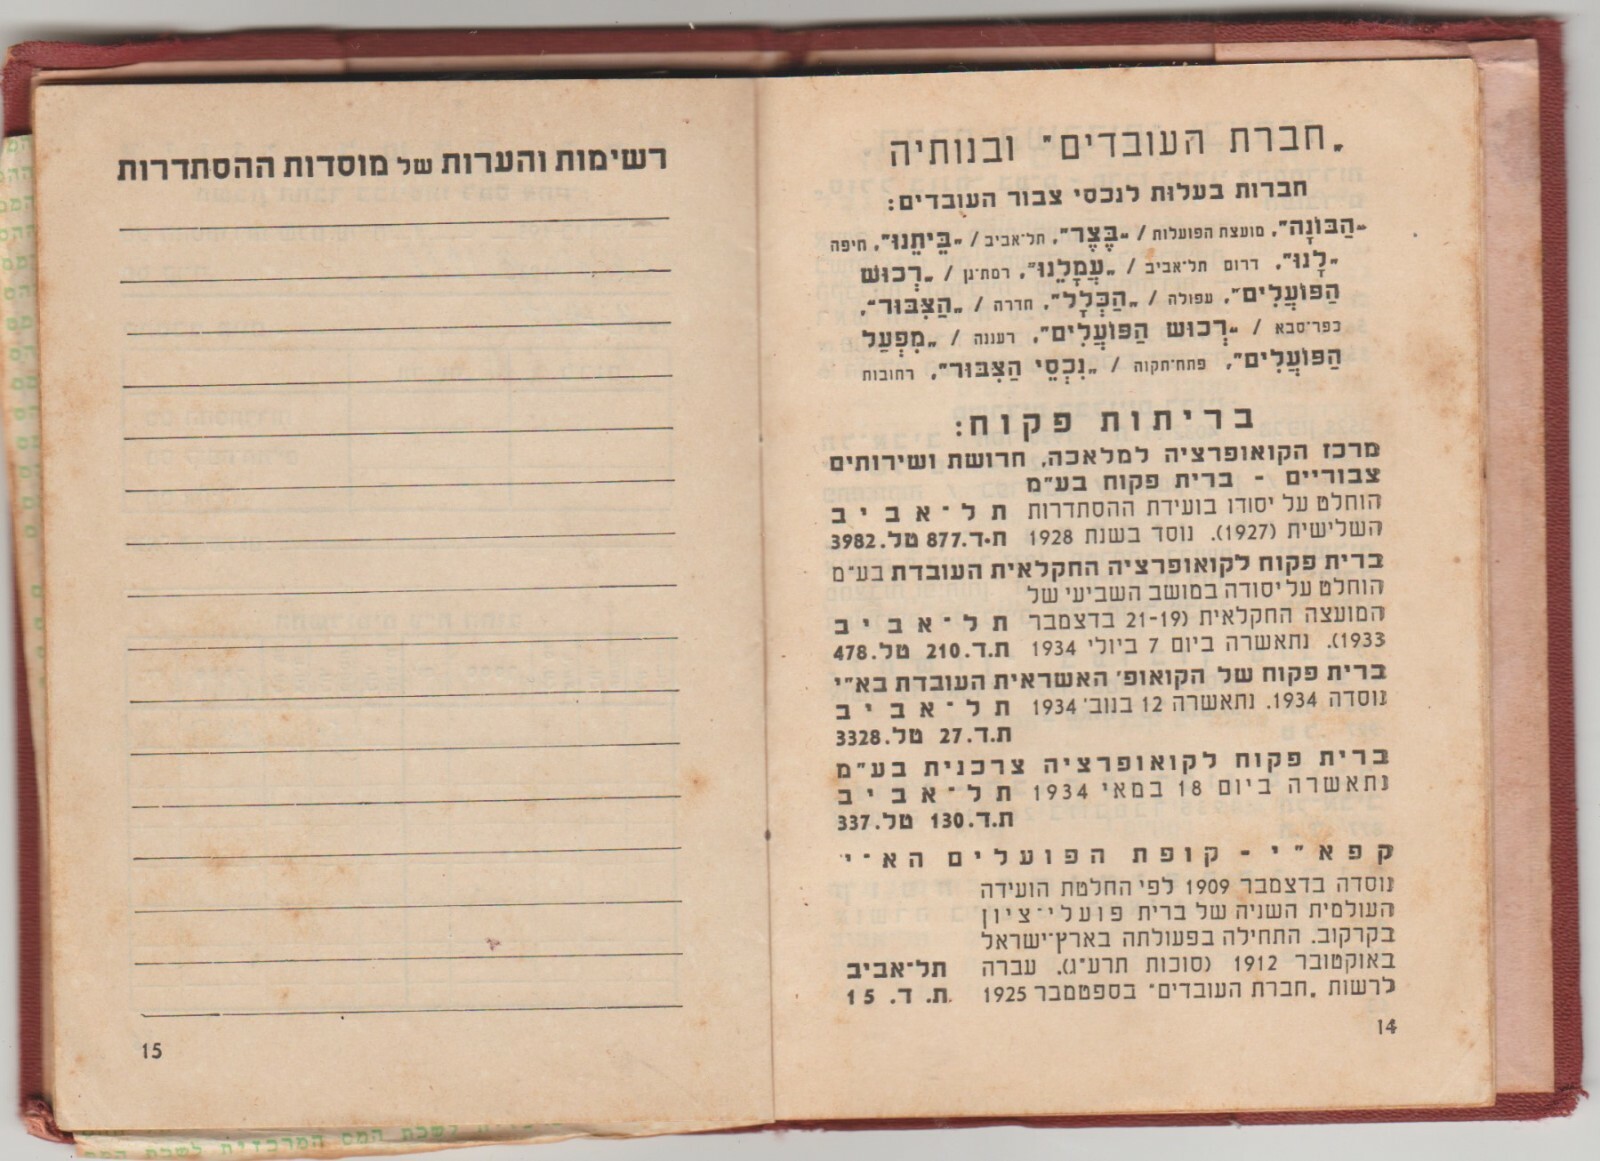 „חברת העובדים" ובנותיה
חברות בעלות לנכסי צבור העובדים:
„הַבּוֹנָה", מועצת הפועלות / „בֶּצֶר", תל־אביב / „בֵּיתֵנוּ", חיפה
„לָנוּ", דרום תל־אביב / „עֲמָלֵנוּ", רמת־גן / „רְכוּשׁ
הַפּוֹעֲלִים", עפולה / „הַכְּלָל", חדרה / „הַצִּבּוּר",
כפר־סבא / „רְכוּשׁ הַפּוֹעֲלִים", רעננה / „מִפְעַל
הַפּוֹעֲלִים", פתח־תקוה / „נִכְסֵי הַצִּבּוּר", רחובות
בריתות פקוח:
מרכז הקואופרציה למלאכה, חרושת ושירותים
צבוריים - ברית פקוח בע"מ
הוחלט על יסודו בועידת ההסתדרות תל־אביב
השלישית (1927). נוסד בשנת 1928 ת.ד. 877 טל. 3982
ברית פקוח לקואופרציה החקלאית העובדת בע"מ
הוחלט על יסודה במושב השביעי של
המועצה החקלאית (19-21 בדצמבר תל־אביב
1933). נתאשרה ביום 7 ביולי 1934 ת.ד. 210 טל. 478
ברית פקוח של הקואופ' האשראית העובדת בא"י
נוסדה 1934. נתאשרה 12 בנוב' 1934 תל־אביב
ת.ד. 27 טל. 3328
ברית פקוח לקואופרציה צרכנית בע"מ
נתאשרה ביום 18 במאי 1934 תל־אביב
ת.ד. 130 טל. 337
קפא"י - קופת הפועלים הא"י
נוסדה בדצמבר 1909 לפי החלטת הועידה
העולמית השניה של ברית פועלי־ציון
בקרקוב. התחילה בפעולתה בארץ־ישראל
באוקטובר 1912 (סוכות תרע"ג). עברה תל־אביב
לרשות „חברת העובדים" בספטמבר 1925 ת. ד. 15
14
רשימות והערות של מוסדות ההסתדרות
15
לשכת המס המרכזית לשכת המס